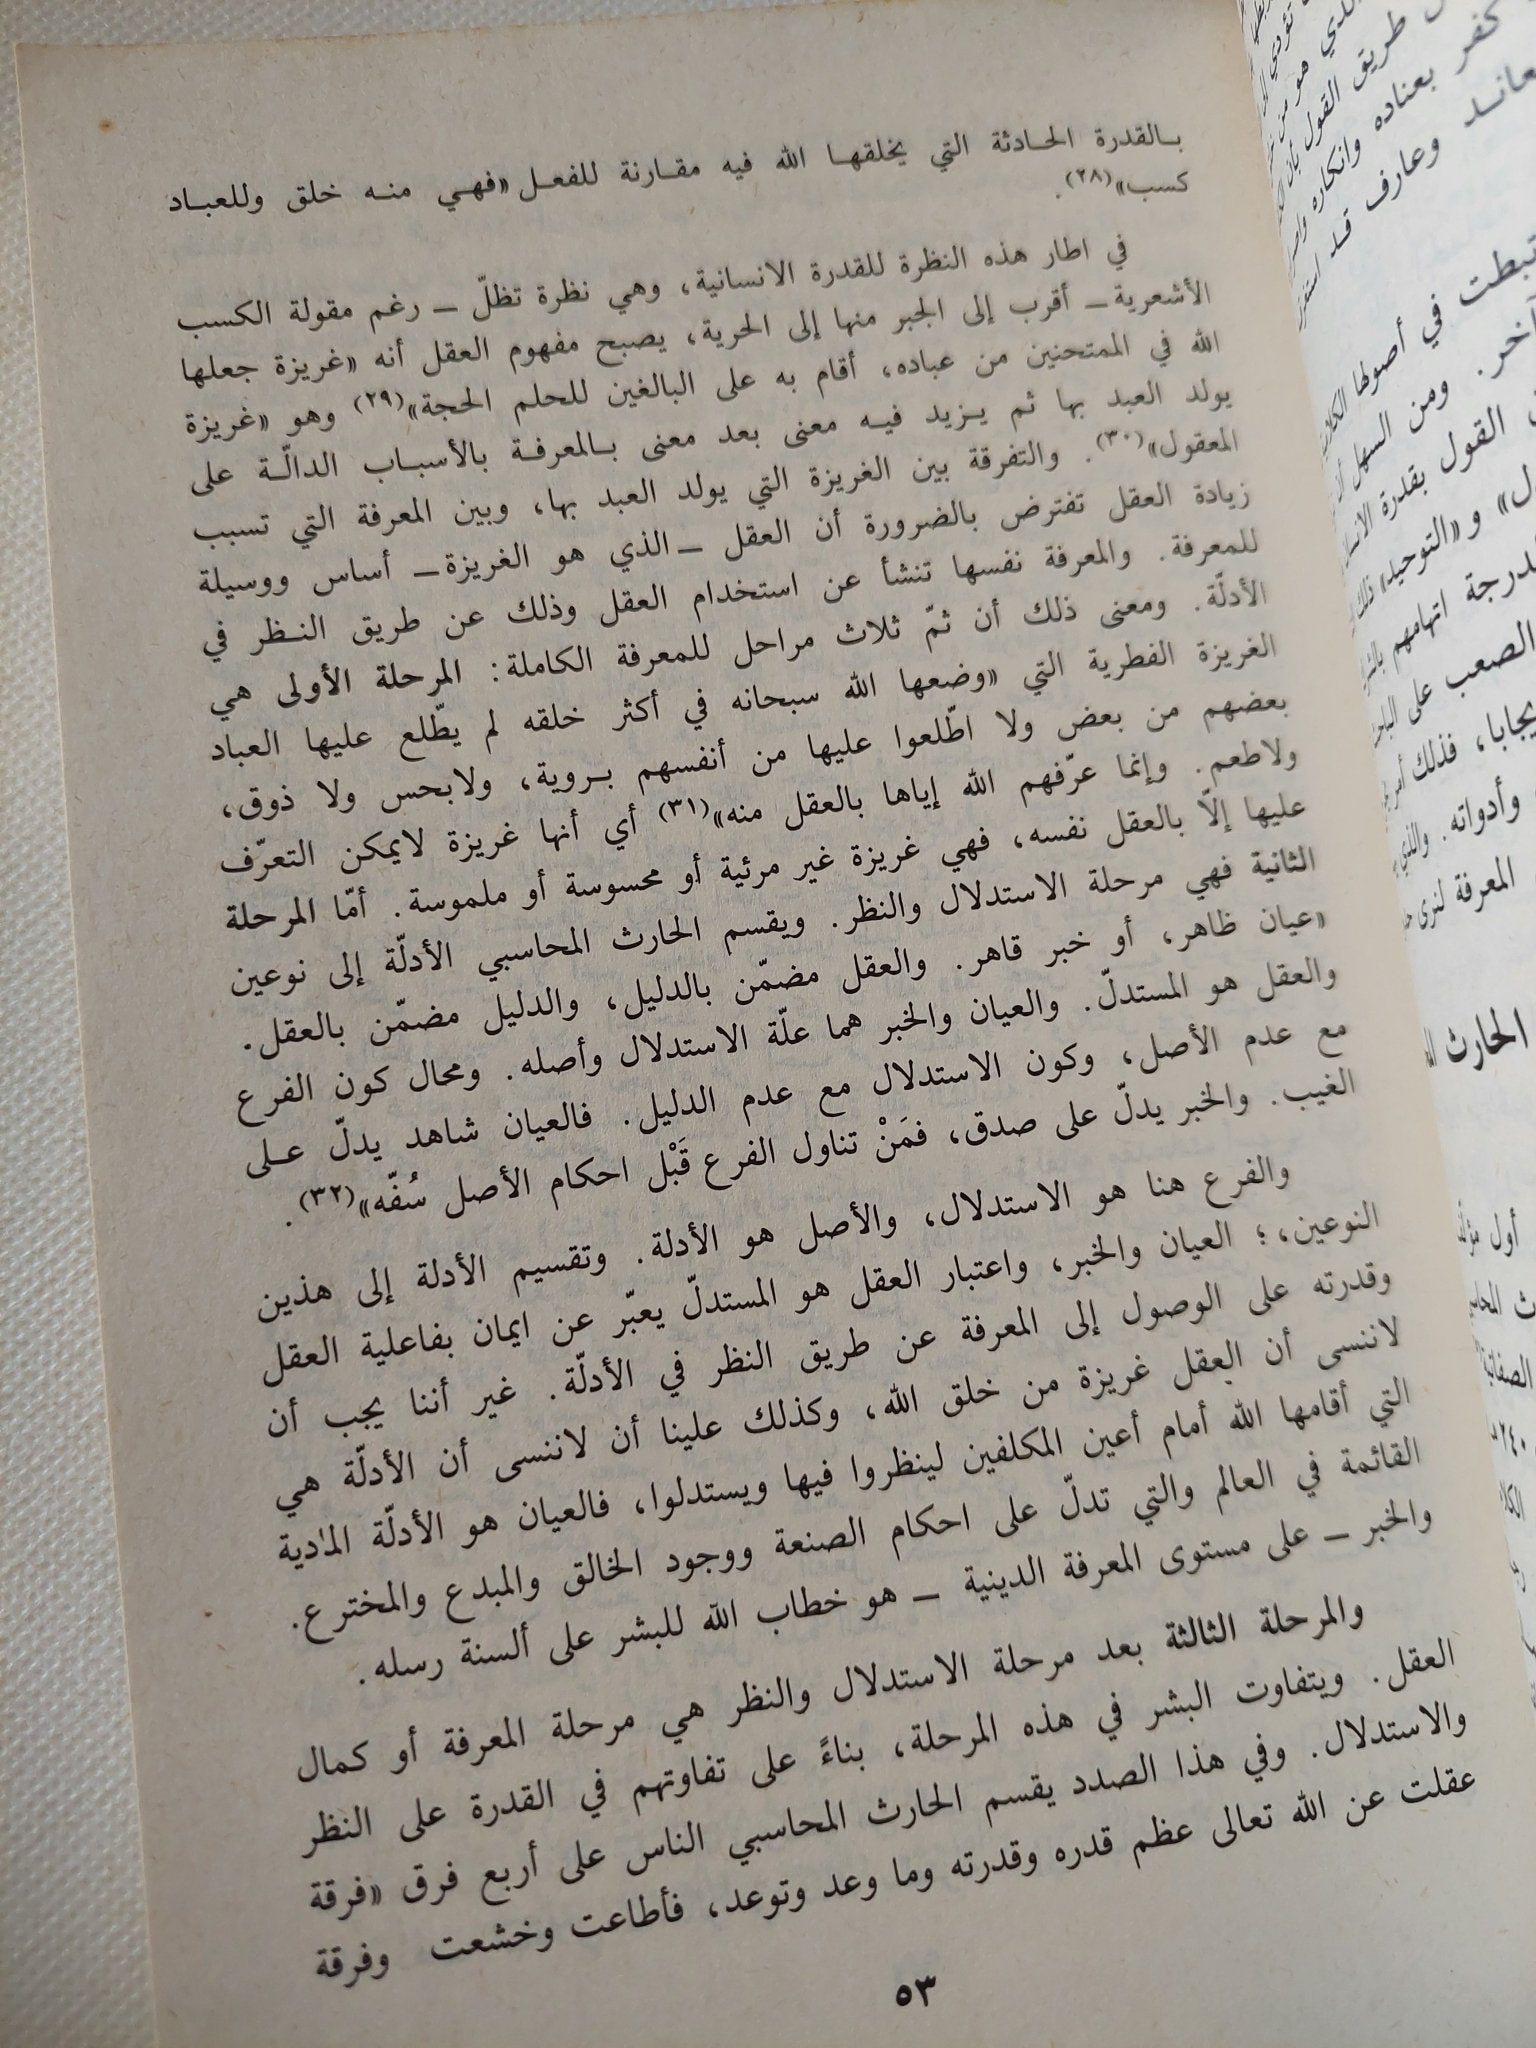 بالقدرة الحادثة التي يخلقها الله فيه مقارنة للفعل «فهي منه خلق وللعباد
كسب»(٢٨).
في اطار هذه النظرة للقدرة الانسانية، وهي نظرة تظلّ ــ رغم مقولة الكسب
الأشعرية ــ أقرب إلى الجبر منها إلى الحرية، يصبح مفهوم العقل أنه «غريزة جعلها
الله في الممتحنين من عباده، أقام به على البالغين للحلم الحجة»(٢٩) وهو «غريزة
يولد العبد بها ثم يزيد فيه معنى بعد معنى بالمعرفة بالأسباب الدالّة على
المعقول»(٣٠). والتفرقة بين الغريزة التي يولد العبد بها، وبين المعرفة التي تسبب
زيادة العقل تفترض بالضرورة أن العقل ــ الذي هو الغريزة ــ أساس ووسيلة
للمعرفة. والمعرفة نفسها تنشأ عن استخدام العقل وذلك عن طريق النظر في
الأدلّة. ومعنى ذلك أن ثمّ ثلاث مراحل للمعرفة الكاملة: المرحلة الأولى هي
الغريزة الفطرية التي «وضعها الله سبحانه في أكثر خلقه لم يطّلع عليها العباد
بعضهم من بعض ولا اطّلعوا عليها من أنفسهم بروية، ولابحس ولا ذوق،
ولاطعم. وإنما عرّفهم الله إياها بالعقل منه»(٣١) أي أنها غريزة لايمكن التعرّف
عليها إلاّ بالعقل نفسه، فهي غريزة غير مرئية أو محسوسة أو ملموسة. أمّا المرحلة
الثانية فهي مرحلة الاستدلال والنظر. ويقسم الحارث المحاسبي الأدلّة إلى نوعين
«عيان ظاهر، أو خبر قاهر. والعقل مضمّن بالدليل، والدليل مضمّن بالعقل.
والعقل هو المستدلّ. والعيان والخبر هما علّة الاستدلال وأصله. ومحال كون الفرع
مع عدم الأصل، وكون الاستدلال مع عدم الدليل. فالعيان شاهد يدلّ على
الغيب. والخبر يدلّ على صدق، فمَنْ تناول الفرع قَبْل احكام الأصل سُفّه»(٣٢).
والفرع هنا هو الاستدلال، والأصل هو الأدلة. وتقسيم الأدلة إلى هذين
النوعين،؛ العيان والخبر، واعتبار العقل هو المستدلّ يعبّر عن ايمان بفاعلية العقل
وقدرته على الوصول إلى المعرفة عن طريق النظر في الأدلّة. غير أننا يجب أن
لاننسى أن العقل غريزة من خلق الله، وكذلك علينا أن لاننسى أن الأدلّة هي
التي أقامها الله أمام أعين المكلفين لينظروا فيها ويستدلوا، فالعيان هو الأدلّة المادية
القائمة في العالم والتي تدلّ على احكام الصنعة ووجود الخالق والمبدع والمخترع.
والخبر ــ على مستوى المعرفة الدينية ــ هو خطاب الله للبشر على ألسنة رسله.
والمرحلة الثالثة بعد مرحلة الاستدلال والنظر هي مرحلة المعرفة أو كمال
العقل. ويتفاوت البشر في هذه المرحلة، بناءً على تفاوتهم في القدرة على النظر
والاستدلال. وفي هذا الصدد يقسم الحارث المحاسبي الناس على أربع فرق «فرقة
عقلت عن الله تعالى عظم قدره وقدرته وما وعد وتوعد، فأطاعت وخشعت وفرقة
٥٣
طريق القول بأن
كفر بعناده وانكاره
وعارف قد
في أصولها
آخر. ومن السهل
القول بقدرة
و«التوحيد»
لدرجة اتهامهم
الصعب على
فذلك أمر
وأدواته. والذي
المعرفة لنرى
الحارث
أول